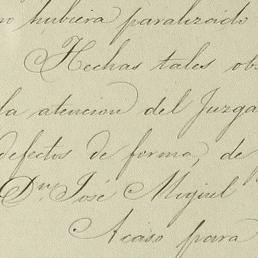 hubiera paralizado
Hechas tales ob
la atencion del Juzga
defectos de forma, de
Dn. José Miguel
Acaso para